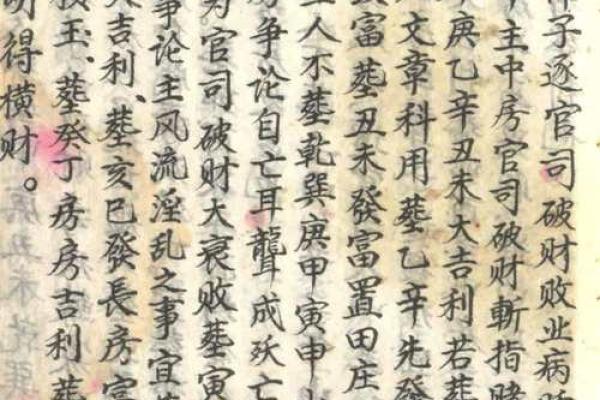 子逐官司破财败业病
主中房官司破财斬指賭
庚乙辛丑未大吉利若塟
文章科用塟乙辛先發
富塟丑未發富置田庄
人不塟乾巽庚甲寅申
争论自亡耳聾成殀亡
官司破财大衰败塟寅
争论主风流淫乱之事宜
吉利、塟亥巳發長房富
玉、塟癸丁房房吉利塟
得横财。